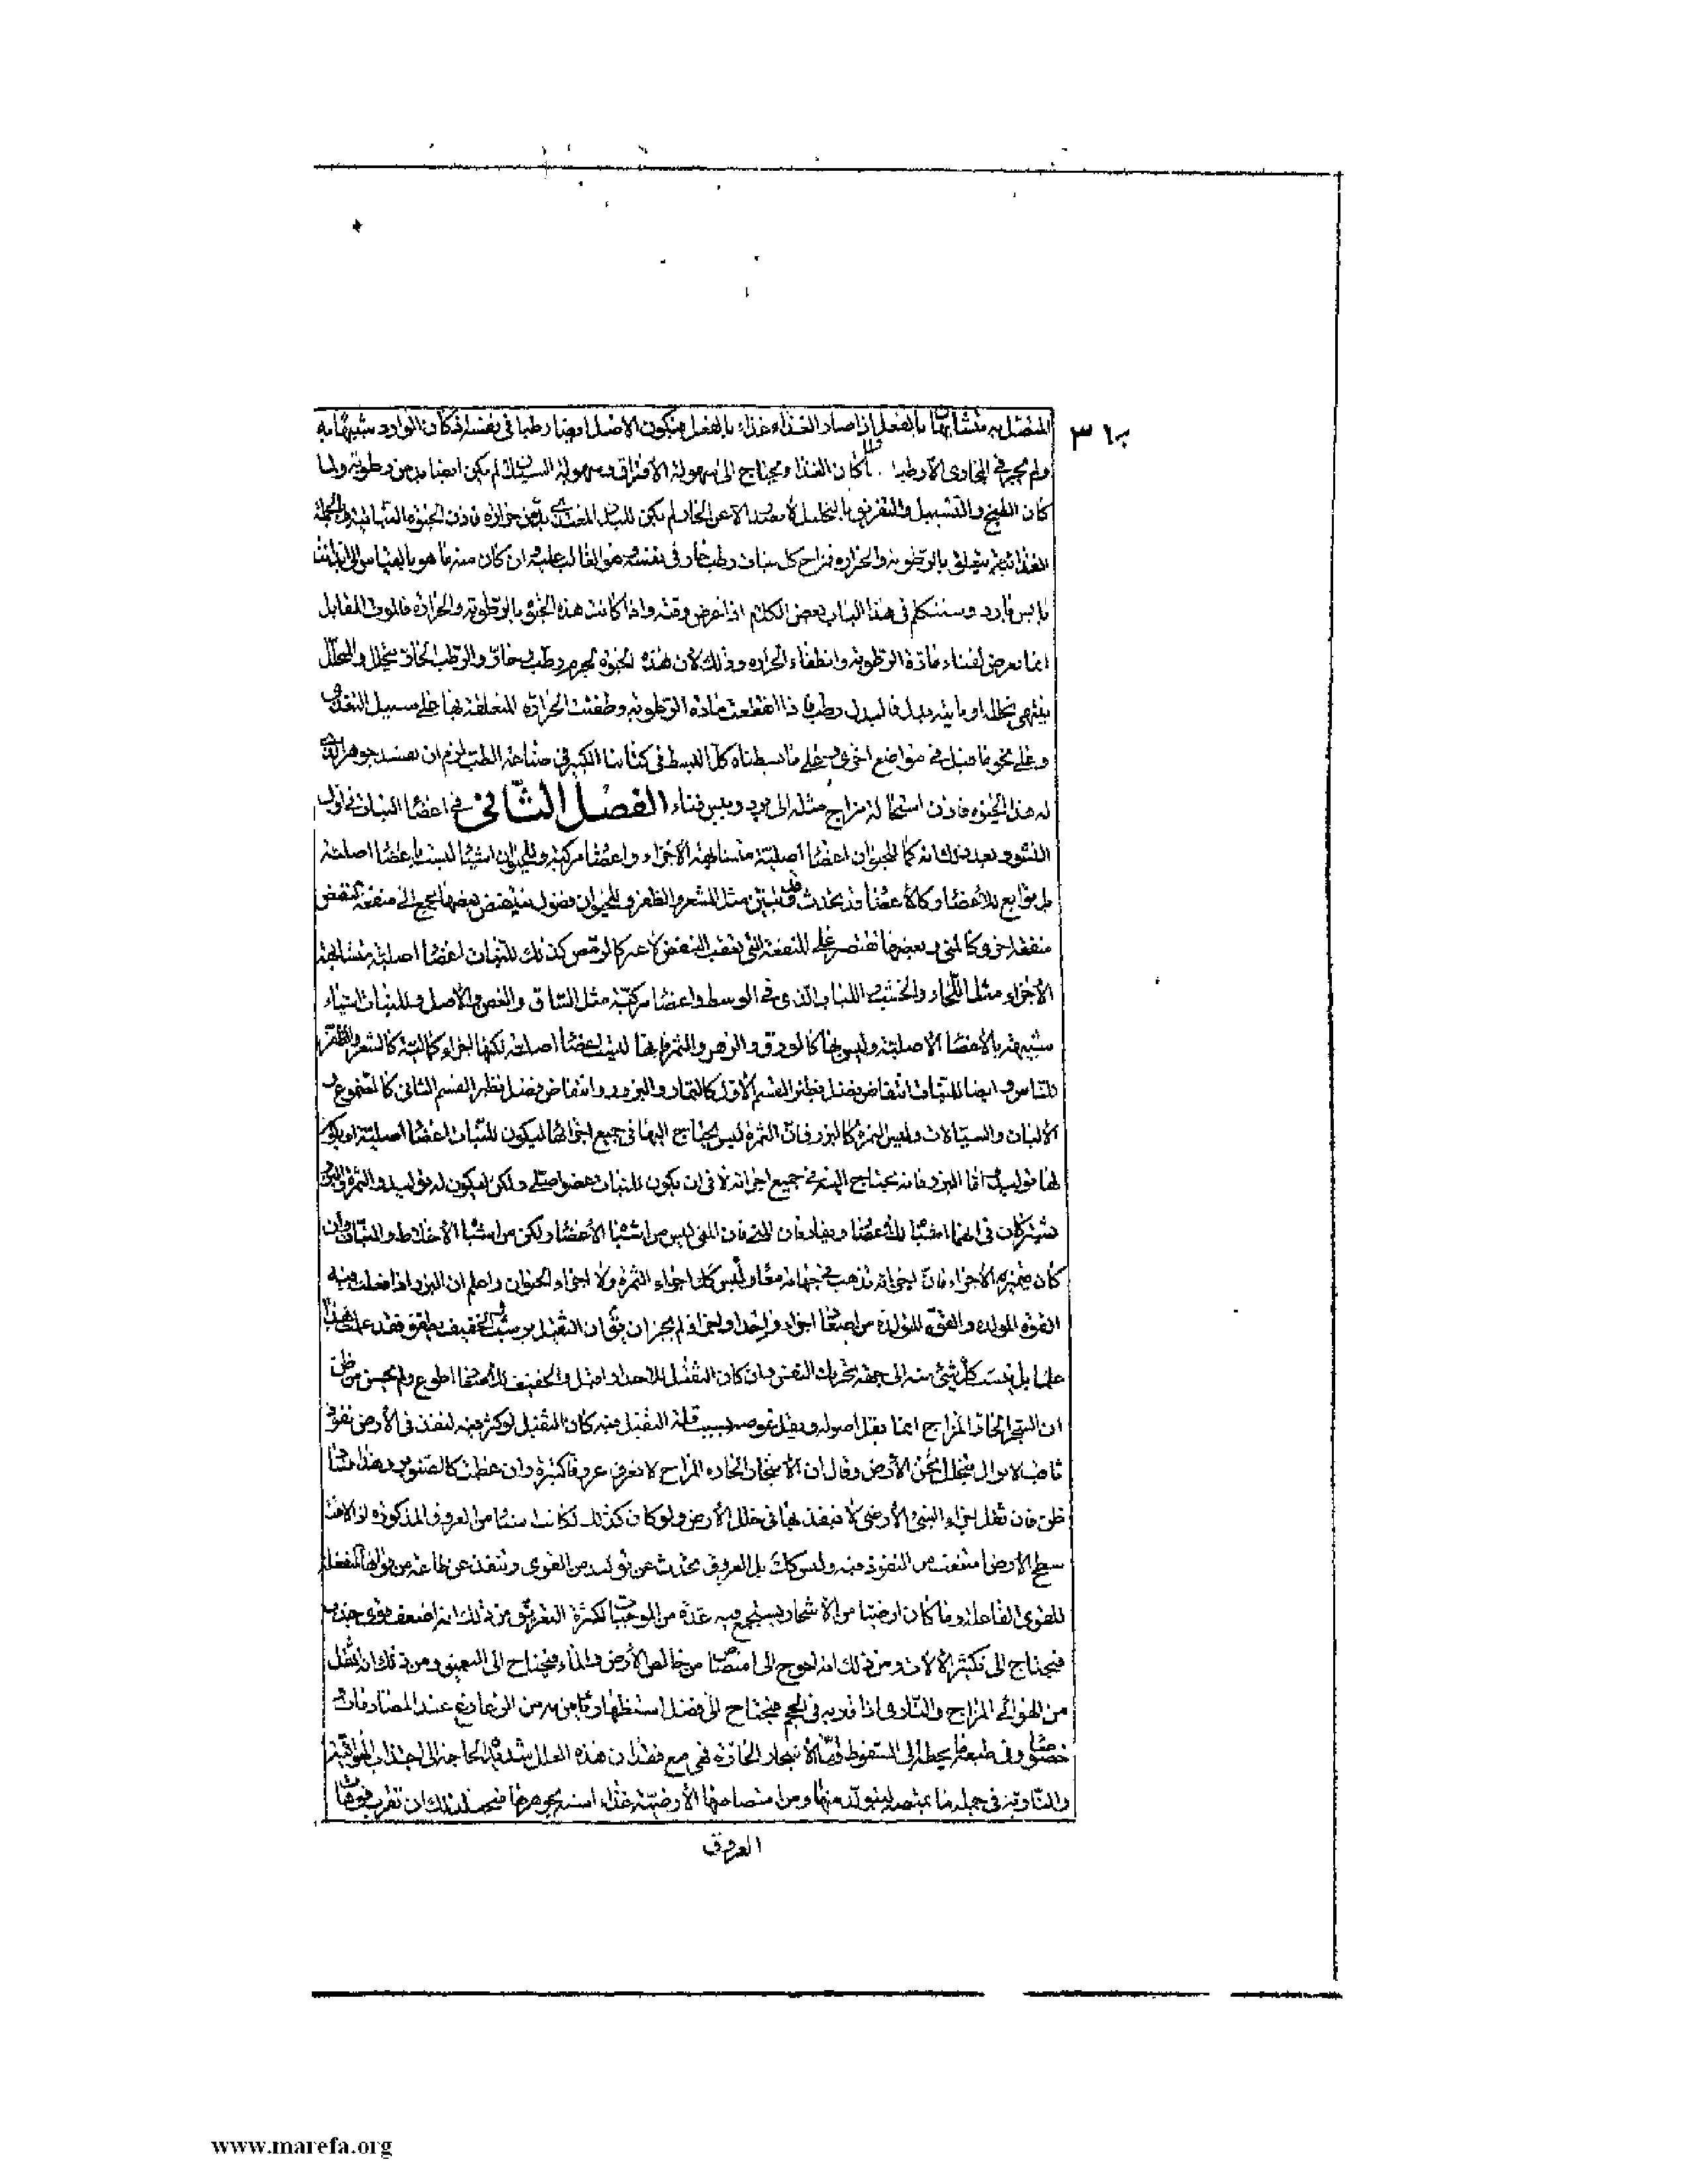 ٣١٠
المتصل به متشابها بالفعل اذا صار الغذاء غذاء بالفعل فيكون الاصل ايضا رطبا في نفسه اذ كان الوارد شبيها به
ولم يجر في المجاري الا رطبا ولما كان الغذاء محتاج الى سهولة الافتراق وسهولة لم يكن ايضا بد من رطوبة ولما
كان الطبخ والتسييل والتفريق بالتحليل لا يصدر الا عن الحار لم يكن للنبات المغتذى بد من حرارة فاذن الحيوة النباتية وبالجملة
الغذائية يتعلق بالرطوبة والحرارة فمزاج كل نبات رطب حار في نفسه هو الغالب عليه وان كان منه ما هو بالقياس الى
يابس بارد وسنتكلم في هذا الباب بعض الكلام اذا عرض وقته واذا كانت هذه الحيوة بالرطوبة والحرارة فالموت المقابل
انما يعرض لفناء مادة الرطوبة وانطفاء الحرارة وذلك لان هذه الحيوة لجرم رطب حار والرطب الحار متحلل والمتحلل
ينتهي تحلله او ياتيه بدل فالبدل رطب فاذا انقطعت مادة الرطوبة وطفئت الحرارة المتعلقة بها على سبيل التغذي
وعلى نحو ما قيل في مواضع اخرى وعلى ما بسطناه كل البسط في كتابنا الكبير في صناعة الطب لزم ان يفسد جوهر الذي
له هذا الحيوة فاذن استحالة مزاج مثله الى برد ويبس فناء الفصل الثاني في اعضاء النبات في اول
النشو وبعد ذلك انه كما للحيوان اعضاء اصلية متشابهة الاجزاء واعضاء مركبة وللحيوان اشياء ليست باعضاء اصلية
بل توابع للاعضاء وكالاعضاء قد يحدث وقد تبين مثل الشعر والظفر وللحيوان فضول ينتفض بعضها يحتاج الى منفعة نفض
منفعة اخرى كالمني وبعضها تقتصر على المنفعة التي تعقب النفض لا غير كالرمص كذلك للنبات اعضاء اصلية متشابهة
الاجزاء مثل اللحاء والخشب واللباب الذي في الوسط واعضاء مركبة مثل الساق والغصن والاصل وللنبات اشياء
شبيهة بالاعضاء الاصلية وليس بها كالورق والزهر والثمر فانها ليست اعضاء اصلية لكنها اجزاء كمالية كالشعر والظفر
للناس وايضا للنبات انتفاض فضل نظير القسم الاول كالثمار والبزور وانتفاض فضل نظير القسم الثاني كالصموغ و
الالبان والسيالات وليس الثمرة كالبزر فان الثمرة ليس يحتاج اليها في جميع اجزائها ليكون للنبات اعضاء اصلية او يكون
لها توليد اما البزر فانه يحتاج اليه في جميع اجزائه لا في ان يكون للنبات عضو اصلي ولكن ليكون له توليد والثمرة والبزر
يشتركان في انهما اشباه للاعضاء ويفارقان المني فان المني ليس من اشباه الاعضاء ولكن من اشباه الاخلاط والنبات وان
كان متميز الاجزاء فان اجزائه تذهب في جهاته معا وليس كل اجزاء الثمرة ولا اجزاء الحيوان واعلم ان البزر اذا فعلت فيه
القوة المولدة والقوة المولدة من اجزاء واحدا واحدا ولم يجز ان يق ان الثقيل يرسب والخفيف يطفو فقد علمت هذا
علما بل ينبت كل شيء منه الى جهة بتحريك النفس وان كان الثقيل للانحدار اميل والخفيف للارتفاع اطوع ولم يحسن من ظن
ان الشجر الحار المزاج انما يقل اصوله ويقل غوصه بسبب قلة الثقيل فيه كان الثقيل لو كثر فيه لنفذ في الارض نفوذ
ثاقب لا يزال متخلل ثخن الارض وقال ان الاشجار الحارة المزاج لا تعرق عروقا كثيرة وان عظمت كالصنوبر وهذا مما
ظن فان ثقل اجزاء الشيء الارضي لا ينفذ بها في خلل الارض ولو كان كذلك لكانت من العروق المذكورة اذا لاقت
سطح الارض امتنعت من النفوذ فيه وليس كك بل العروق تحدث عن توليد من القوى وتنفذ عن طاعة من
للقوى الفاعلة وما كان ارضيا من الاشجار يستجمع فيه عدة من الموجبات لكثرة التعريق من ذلك انه اضعف قوى جذب
فيحتاج الى تكثير الالات ومن ذلك انه احوج الى امتصاص من خالص الارض والماء فيحتاج الى التعميق ومن ذلك انه اثقل
من الهوائي المزاج والناري اذا قدر به في الحجم فيحتاج الى فضل استظهار يامن به من الزعازع عند المصادمات
خصوصا وفي طبعه ما يحطه الى السقوط واما الاشجار الحارة فهي مع فقدان هذه العلل شديدة الحاجة الى اجتذاب الهوائية
والنارية في جملة ما يمتصه ليتولد منها ومن امتصاصها الارضية غذاء اشبه بجوهرها فيحمد لذلك ان تقرب فوهات
العروق
www.marefa.org